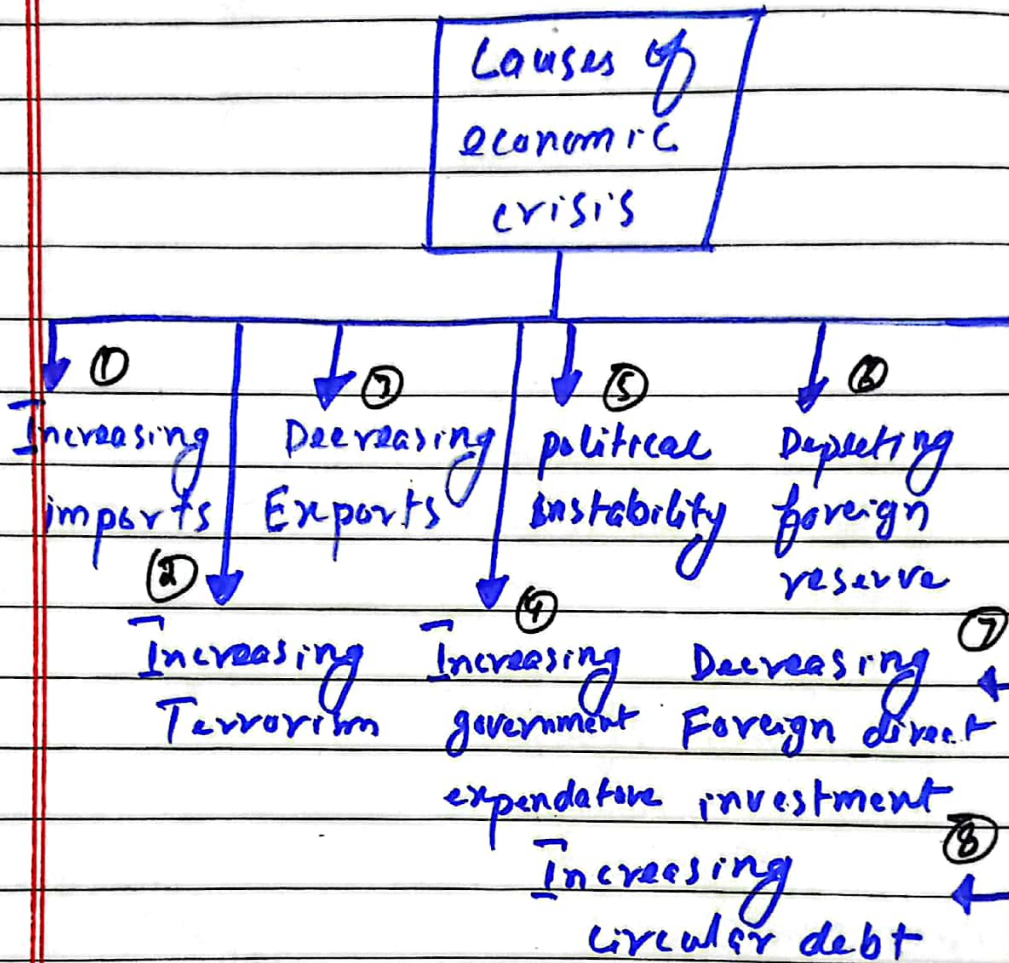 Causes of
economic
crisis
①
Increasing
imports
②
Increasing
Terrorism
③
Decreasing
Exports
④
Increasing
government
expendature
⑤
political
instability
⑥
Depleting
foreign
reserve
⑦
Decreasing
Foreign direct
investment
⑧
Increasing
circular debt